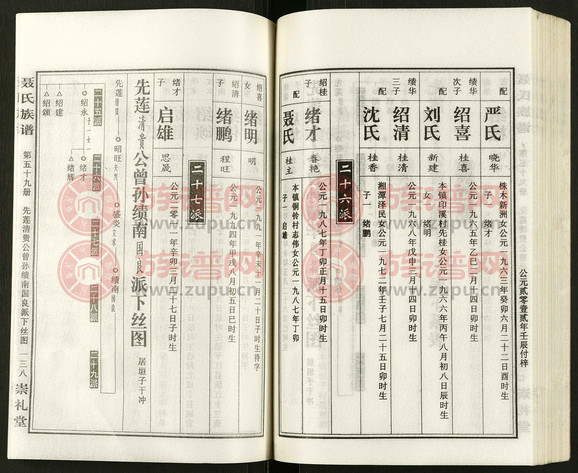 公元贰零壹贰年壬辰付梓
配 严氏 晓华 株木新洲女公元一九六三年癸卯六月二十二日酉时生
子一 绪才
次子 绍喜 桂喜 公元一九六五年乙巳二月二十四日卯时生
配 刘氏 新建 本镇印溪村先桂女公元一九六六年丙午八月初八日辰时生
女一 绪明
三子 绍清 桂清 公元一九六八年戊申三月二十四日卯时生
配 沈氏 桂香 湘潭泽民女公元一九七二年壬子七月二十五日卯时生
子一 绪鹏
二十六派
绍桂子 绪才 春艳 公元一九八七年丁卯正月十五日卯时生
配 聂氏 桂主 本镇铜铃村志伟女公元一九八七年丁卯
子一 启雄
绍喜女 绪明 明 公元一九九一年辛未十一月二十日子时生待字
绍清子 绪鹏 程旺 公元一九九四年甲戌八月初五日巳时生
二十七派
绪才子 启雄 思晟 公元二零一一年辛卯三月二十七日子时生
先莲清贵公曾孙绩南国良派下丝图 居垣子干冲
先莲 昭旺 盛炎 绩南
二十五派 二十六派 二十七派 二十八派 二十九派
绍永 子一 女一 绪才
绍建 绪辉
绍颁
聂氏族谱 第五十九册 先莲清贵公曾孙绩南国良派下丝图 一三八 崇礼堂
族谱网
www.zupu.cn
族谱网
www.zupu.cn